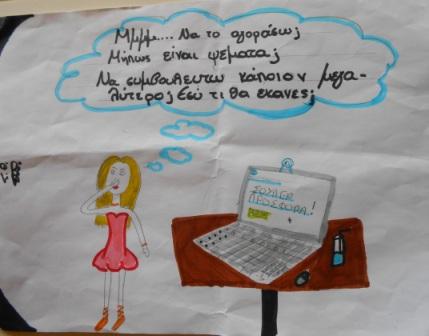 Μμμμ.... Να το αγοράσω;
Μήπως είναι ψέματα;
Να συμβουλευτω κάποιον μεγα-
λύτερο; Εσύ τι θα έκανες;
ΣΟΥΠΕΡ
ΠΡΟΣΦΟΡΑ!